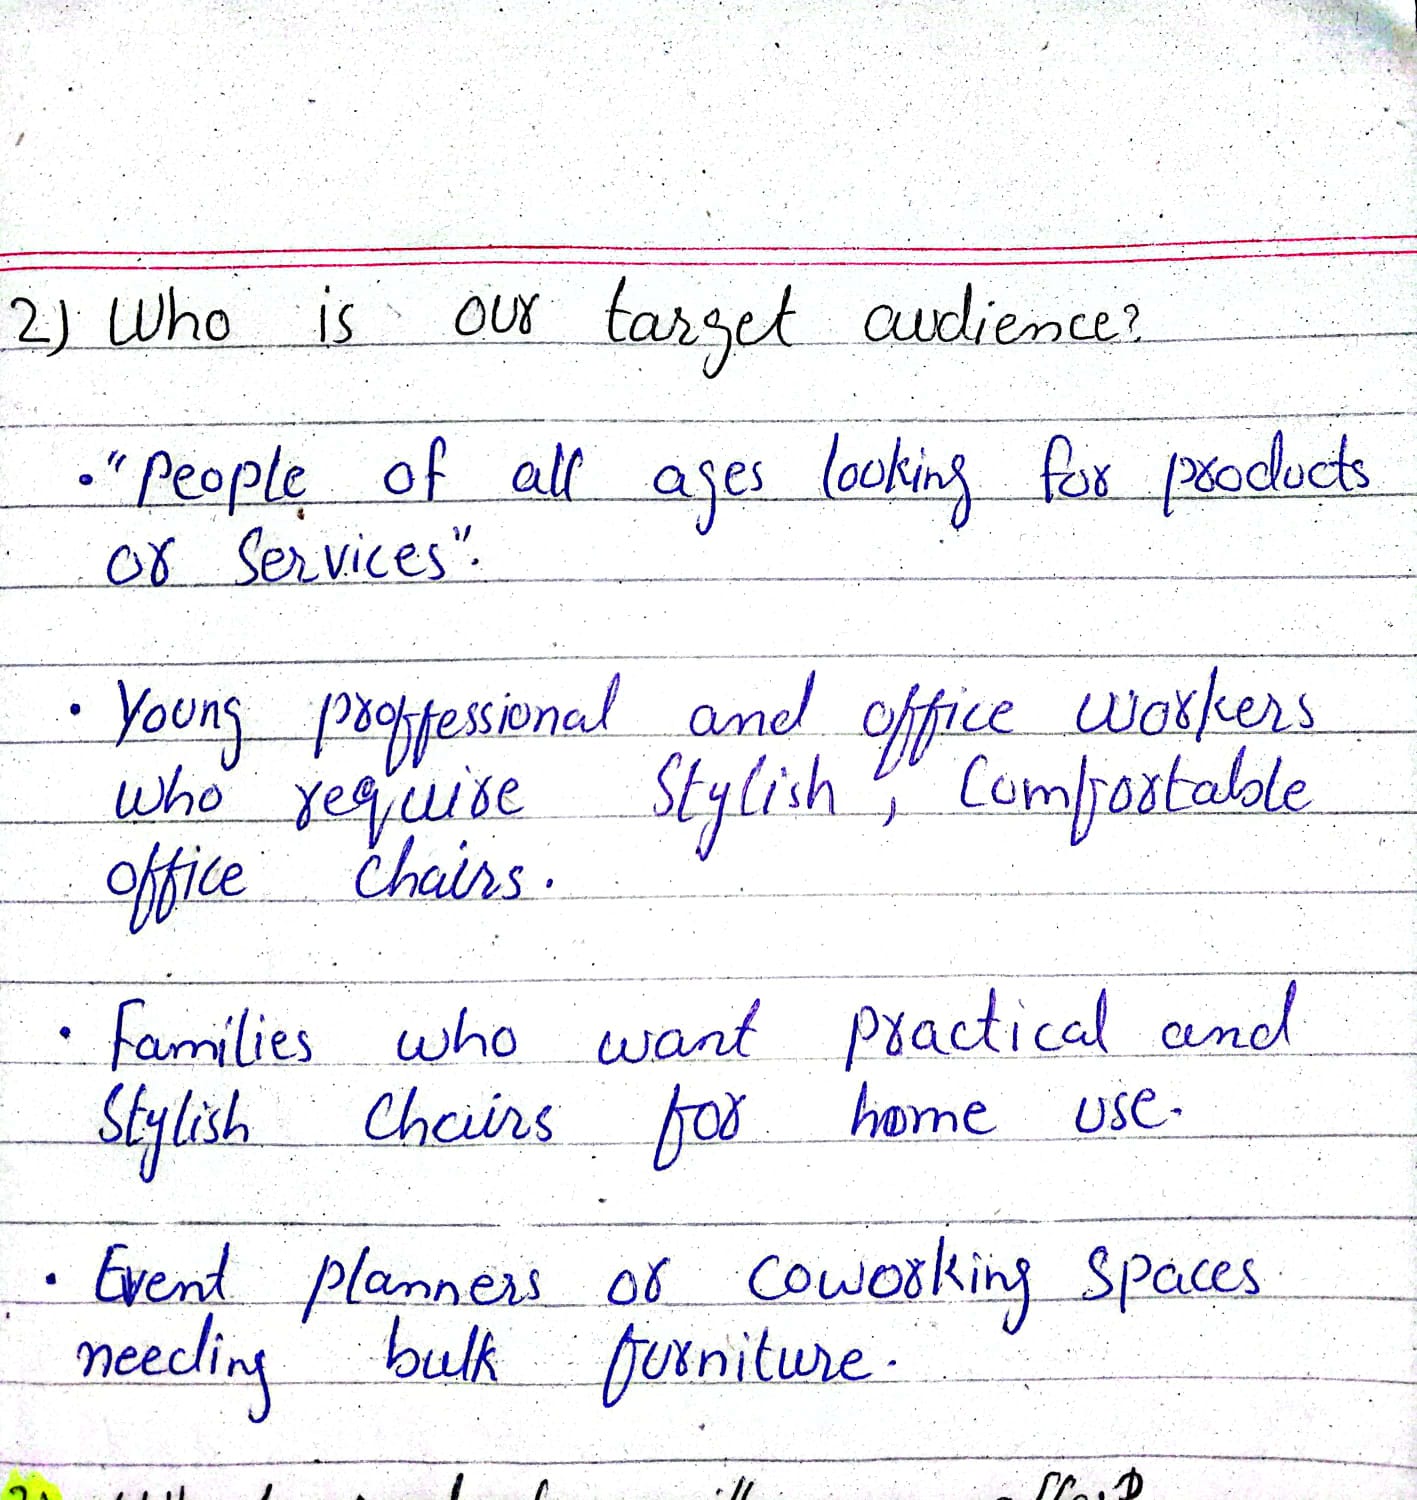 2) Who is our target audience?
• "People of all ages looking for products
or Services".
• Young proffessional and office workers
who require Stylish, Comfortable
office chairs.
• Families who want practical and
Stylish Chairs for home use.
• Event planners or coworking spaces
needing bulk furniture.